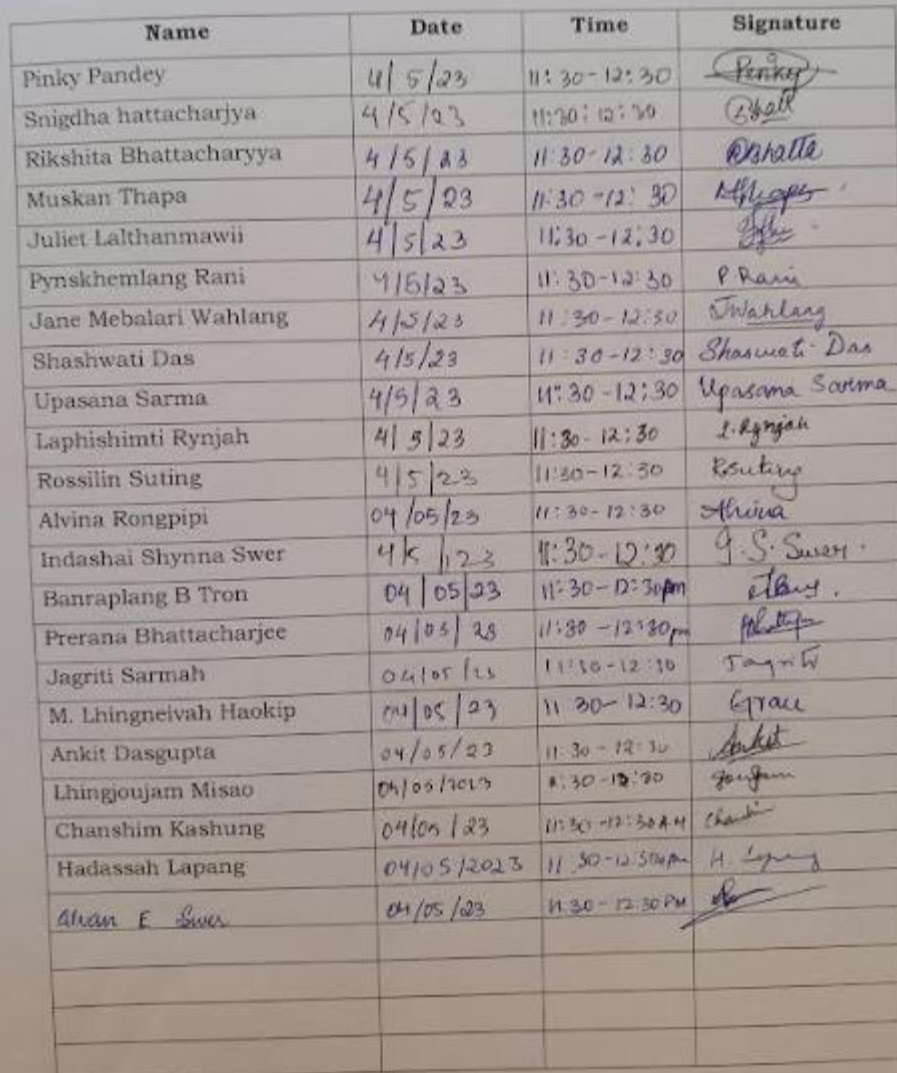 Name Date Time Signature
Pinky Pandey 4/5/23 11:30-12:30 Pinky
Snigdha hattacharjya 4/5/23 11:30:12:30
Rikshita Bhattacharyya 4/5/23 11:30-12:30
Muskan Thapa 4/5/23 11:30-12:30
Juliet Lalthanmawii 4/5/23 11:30-12:30
Pynskhemlang Rani 4/5/23 11:30-12:30 P Rani
Jane Mebalari Wahlang 4/5/23 11:30-12:30 JWahlang
Shashwati Das 4/5/23 11:30-12:30 Shaswati Das
Upasana Sarma 4/5/23 11:30-12:30 Upasana Sarma
Laphishimti Rynjah 4/5/23 11:30-12:30 L.Rynjah
Rossilin Suting 4/5/23 11:30-12:30 Rsuting
Alvina Rongpipi 04/05/23 11:30-12:30 Alvina
Indashai Shynna Swer 4/5/23 11:30-12:30 I.S.Swer.
Banraplang B Tron 04/05/23 11:30-12:30pm
Prerana Bhattacharjee 04/05/23 11:30-12:30pm
Jagriti Sarmah 04/05/23 11:30-12:30 Jagriti
M. Lhingneivah Haokip 04/05/23 11 30-12:30 Grace
Ankit Dasgupta 04/05/23 11:30-12:30 Ankit
Lhingjoujam Misao 04/05/2023 11:30-12:30
Chanshim Kashung 04/05/23 11:30-12:30AM
Hadassah Lapang 04/05/2023 11:30-12:30pm H. Lapang
E Swer 04/05/23 11.30-12.30PM